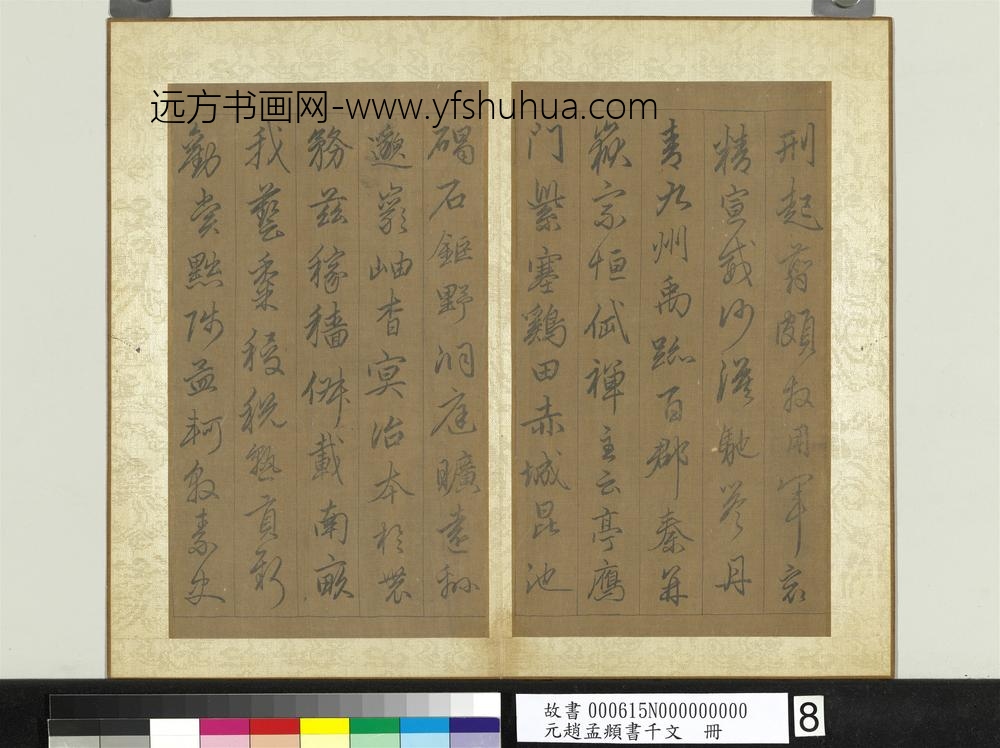 远方书画网-www.yfshuhua.com
刑起翦頗牧用軍冣
精宣威沙漠馳譽丹
青九州禹跡百郡秦并
嶽宗恒岱禪主云亭鴈
門紫塞鷄田赤城昆池
碣石鉅野洞庭曠遠緜
邈巖岫杳冥治本於農
務茲稼穡俶載南畝
我藝黍稷稅熟貢新
勸賞黜陟孟軻敦素史
故書 000615N000000000
元趙孟頫書千文 冊
8